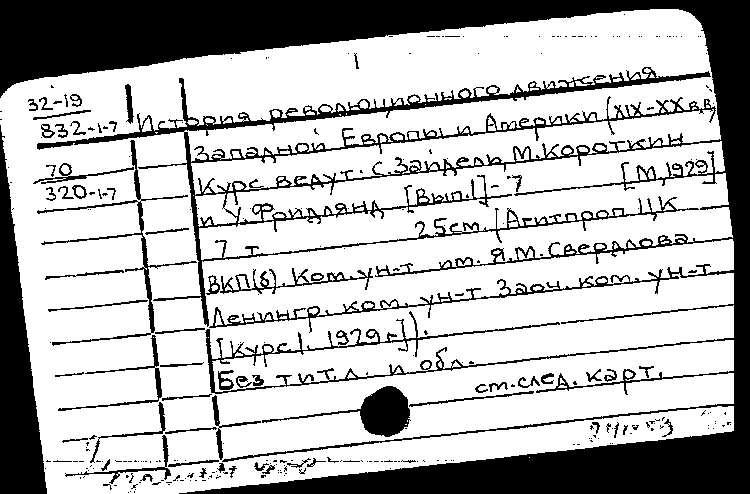 1
32-19
832-1-7 История революционного движения
Западной Европы и Америки (XIX-XX в.в.)
70
320-1-7
Курс ведут: С. Зайдель, М. Короткин
и У. Фридлянд [Вып.1]-7 [М, 1929]
7 т. 25см. (Агитпроп Ц,К
ВКП(б). Ком. ун-т им. Я.М. Свердлова.
Ленингр. ком. ун-т. Заоч. ком. ун-т
[Курс.1. 1929 г.]).
Без тит.л. и обл.
см.след. карт.